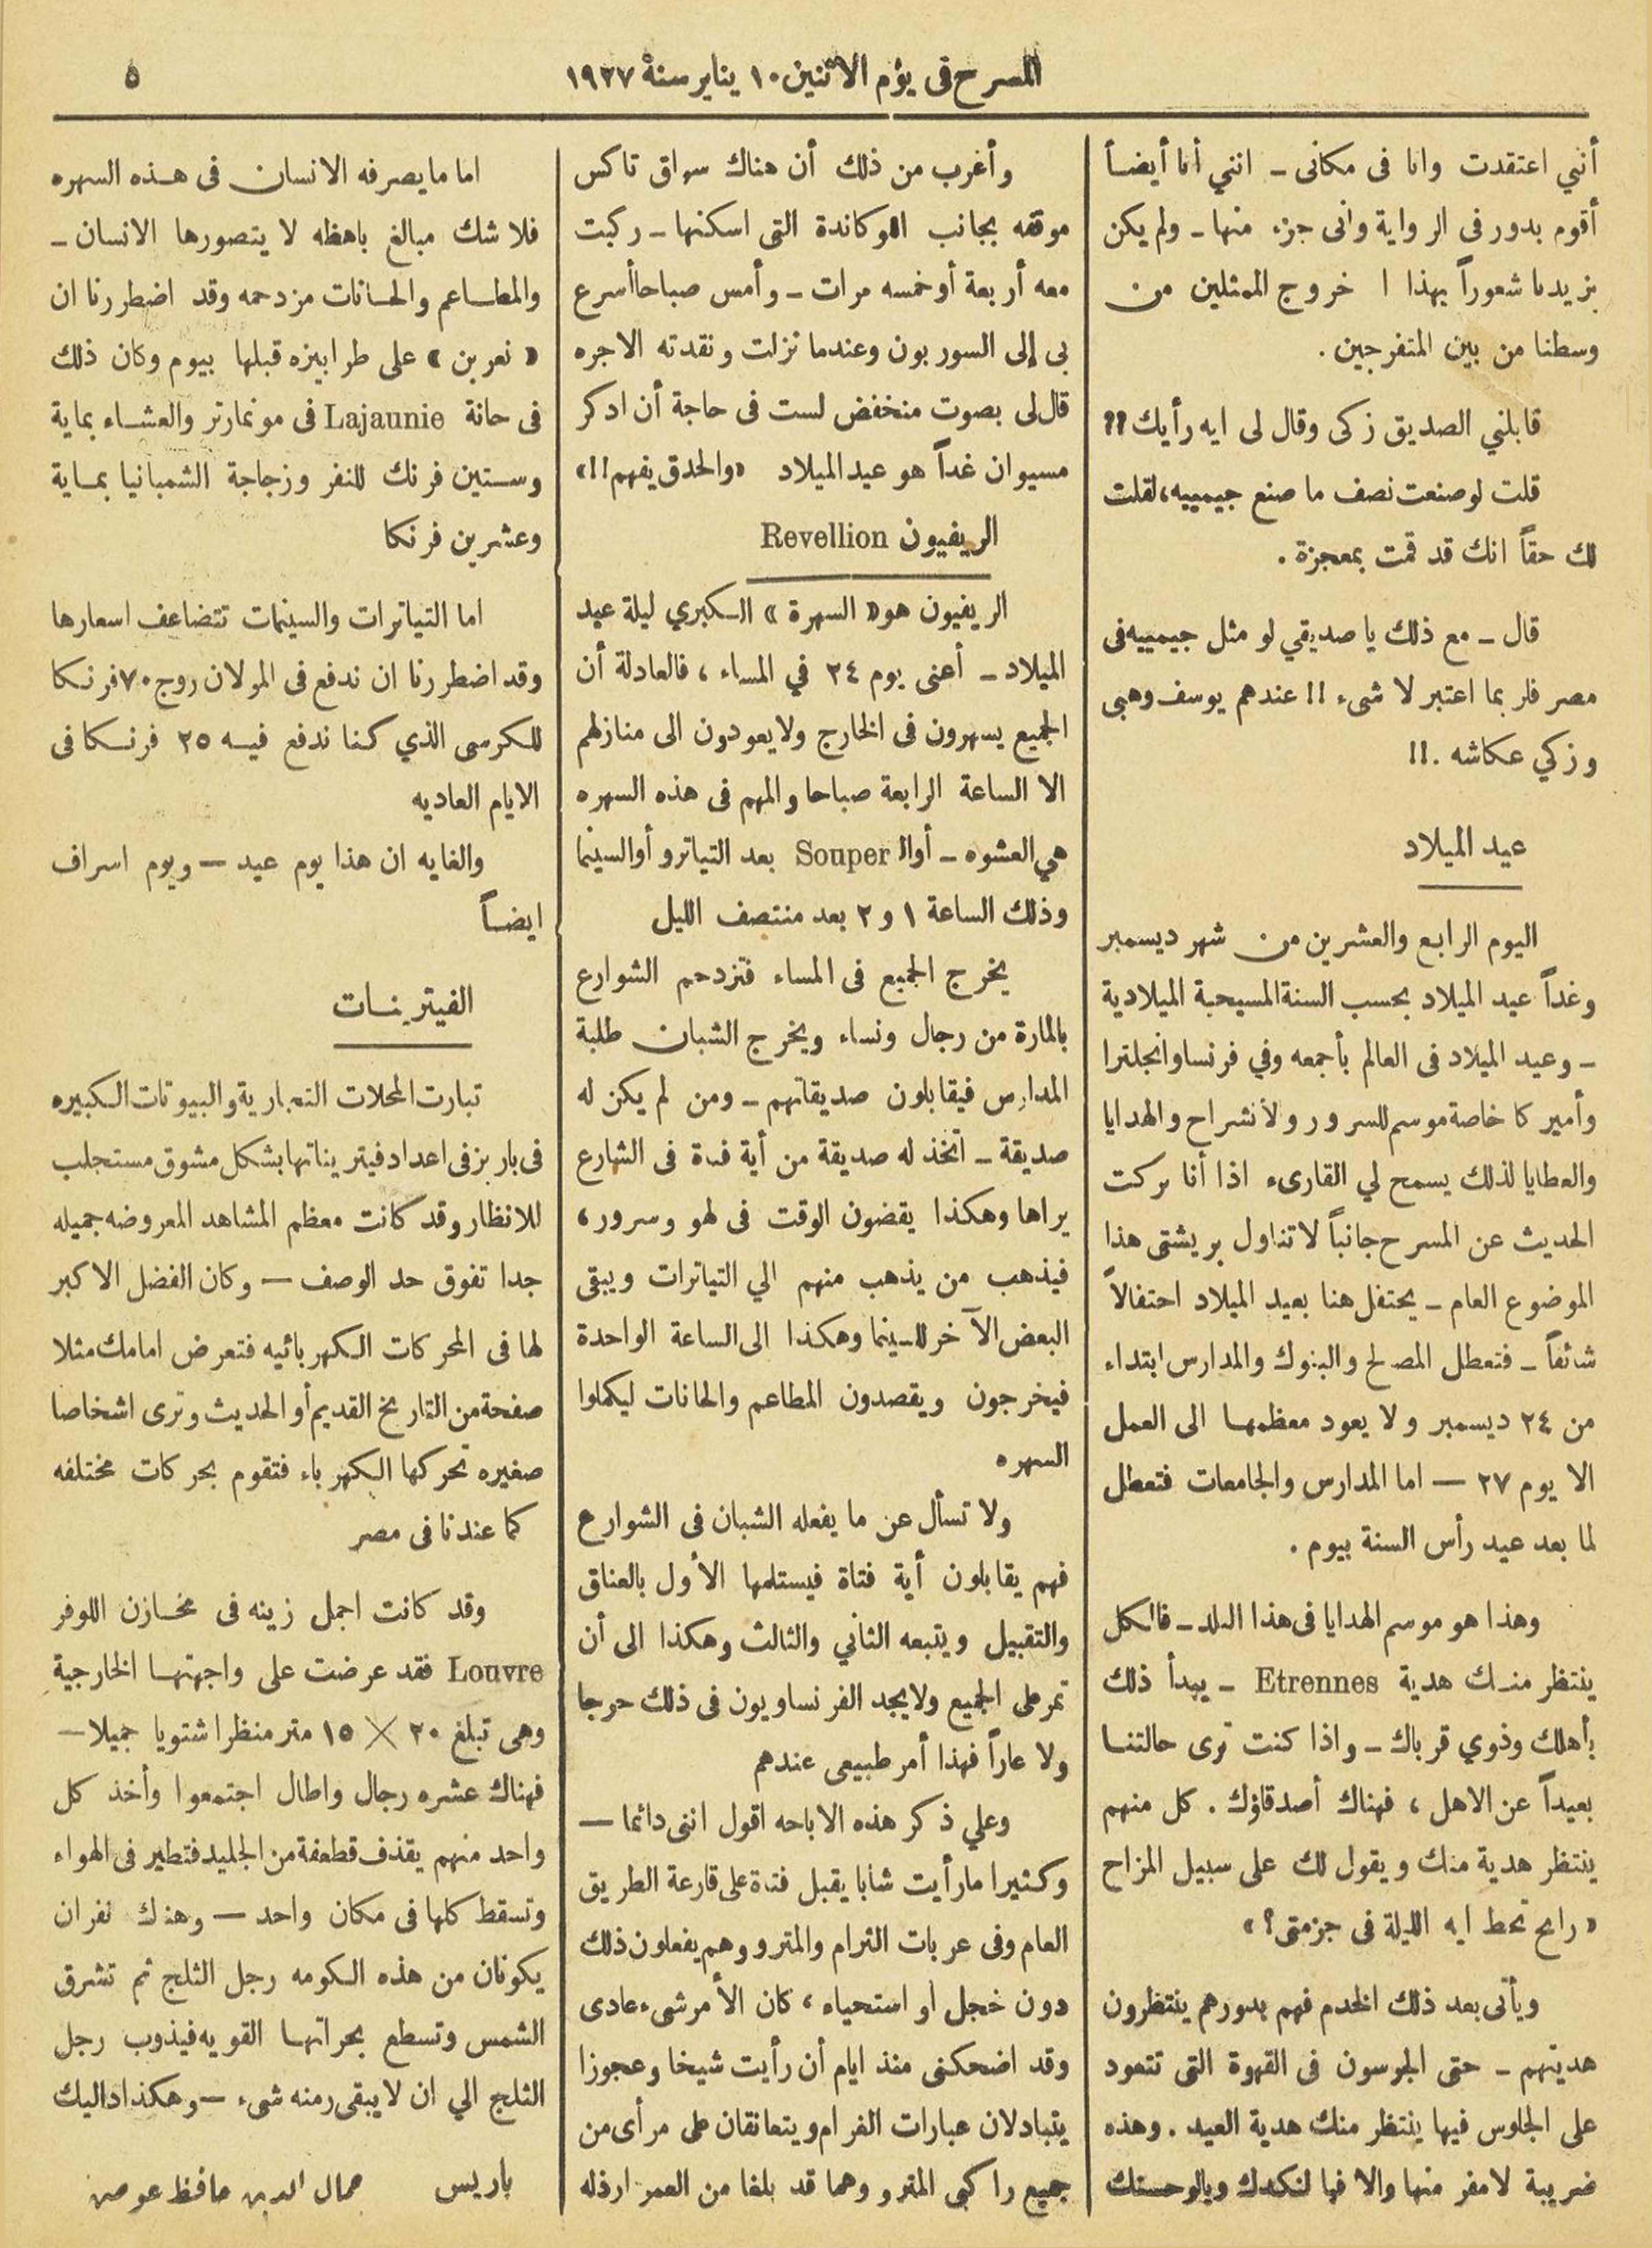 المسرح فى يوم الاثنين ١٠ يناير سنة ١٩٢٧
٥
أنني اعتقدت وانا فى مكانى ـ اننى أنا أيضاً
أقوم بدور فى الرواية وانى جزء منها ـ ولم يكن
يزيدنا شعوراً بهذا ا خروج الممثلين من
وسطنا من بين المتفرجين .
قابلني الصديق زكى وقال لى ايه رأيك ؟؟
قلت لو صنعت نصف ما صنع جيمييه، لقلت
لك حقاً انك قد قمت بمعجزة .
قال ـ مع ذلك يا صديقي لو مثل جيمييه فى
مصر فلربما اعتبر لا شىء !! عندهم يوسف وهبى
وزكي عكاشه . !!
عيد الميلاد
اليوم الرابع والعشرين من شهر ديسمبر
وغداً عيد الميلاد بحسب السنة المسيحية الميلادية
ـ وعيد الميلاد فى العالم بأجمعه وفي فرنسا وانجلترا
وأميركا خاصة موسم للسرور ولأنشراح والهدايا
والعطايا لذلك يسمح لي القارىء اذا أنا تركت
الحديث عن المسرح جانباً لاتناول بريشتى هذا
الموضوع العام ـ يحتفل هنا بعيد الميلاد احتفالاً
شائقاً ـ فتعطل المصالح والبنوك والمدارس ابتداء
من ٢٤ ديسمبر ولا يعود معظمها الى العمل
الا يوم ٢٧ — اما المدارس والجامعات فتعطل
لما بعد عيد رأس السنة بيوم .
وهذا هو موسم الهدايا فى هذا البلد ـ فالكل
ينتظر منك هدية Etrennes ـ يبدأ ذلك
بأهلك وذوي قرباك ـ واذا كنت ترى حالتنا
بعيداً عن الاهل ، فهناك أصدقاؤك . كل منهم
ينتظر هدية منك ويقول لك على سبيل المزاح
« رايح تحط ايه الليلة فى جزمتى ؟ »
ويأتى بعد ذلك الخدم فهم بدورهم ينتظرون
هديتهم ـ حتى الجرسون فى القهوة التى تتعود
على الجلوس فيها ينتظر منك هدية العيد . وهذه
ضريبة لا مفر منها والا فيا لنكدك ويالوحستك
وأغرب من ذلك أن هناك سواق تاكس
موقفه بجانب اللوكاندة التى اسكنها ـ ركبت
معه أربعة أو خمسه مرات ـ وأمس صباحا أسرع
بى إلى السوربون وعندما نزلت ونقدته الاجره
قال لى بصوت منخفض لست فى حاجة أن ادكر
مسيو ان غداً هو عيد الميلاد «والحدق يفهم !! »
الريفيون Revellion
الريفيون هو « السهرة » الكبري ليلة عيد
الميلاد ـ أعنى يوم ٢٤ في المساء ، فالعادلة أن
الجميع يسهرون فى الخارج ولا يعودون الى منازلهم
الا الساعة الرابعة صباحا والمهم فى هذه السهره
هي العشوه ـ أوال Souper بعد التياترو أو السينما
وذلك الساعة ١ و ٢ بعد منتصف الليل
يخرج الجميع فى المساء فتزدحم الشوارع
بالمارة من رجال ونساء ويخرج الشبان طلبة
المدارس فيقابلون صديقاتهم ـ ومن لم يكن له
صديقة ـ اتخذ له صديقة من أية فتاة فى الشارع
يراها وهكذا يقضون الوقت فى لهو وسرور ،
فيذهب من يذهب منهم الي التياترات ويبقى
البعض الآخر للسينما وهكذا الى الساعة الواحدة
فيخرجون ويقصدون المطاعم والحانات ليكملوا
السهره
ولا تسأل عن ما يفعله الشبان فى الشوارع
فهم يقابلون أية فتاة فيستلمها الأول بالعناق
والتقبيل ويتبعه الثاني والثالث وهكذا الى أن
تمر على الجميع ولا يجد الفرنساويون فى ذلك حرجا
ولا عاراً فهذا أمر طبيعى عندهم
وعلي ذكر هذه الاباحه اقول اننى دائما —
وكثيرا ما رأيت شابا يقبل فتاة على قارعة الطريق
العام وفى عربات الترام والمترو وهم يفعلون ذلك
دون خجل او استحياء ، كان الأمر شىء عادى
وقد اضحكنى منذ ايام أن رأيت شيخا وعجوزا
يتبادلان عبارات الغرام ويتعانقان على مرأى من
جميع راكبى المترو وهما قد بلغا من العمر ارذله
اما ما يصرفه الانسان فى هذه السهره
فلا شك مبالغ باهظه لا يتصورها الانسان ـ
والمطاعم والحانات مزدحمه وقد اضطررنا ان
« نعربن » على طرابيزه قبلها بيوم وكان ذلك
فى حانة Lajaunie فى مونمارتر والعشاء بماية
وستين فرنك للنفر وزجاجة الشمبانيا بماية
وعشرين فرنكا
اما التياترات والسينمات تتضاعف اسعارها
وقد اضطررنا ان ندفع فى المولان روج ٧٠ فرنكا
للكرسى الذي كنا ندفع فيه ٢٥ فرنكا فى
الايام العاديه
والغايه ان هذا يوم عيد — ويوم اسراف
ايضاً
الفيترينات
تبارت المحلات التجارية والبيوتات الكبيره
فى باريز فى اعداد فيتريناتها بشكل مشوق مستجلب
للانظار وقد كانت معظم المشاهد المعروضه جميله
جدا تفوق حد الوصف — وكان الفضل الاكبر
لها فى المحركات الكهربائيه فتعرض امامك مثلا
صفحة من التاريخ القديم أو الحديث وترى اشخاصا
صغيره تحركها الكهرباء فتقوم بحركات مختلفه
كما عندنا فى مصر
وقد كانت اجمل زينه فى مخازن اللوفر
Louvre فقد عرضت على واجهتها الخارجية
وهى تبلغ ٢٠ × ١٥ متر منظرا شتويا جميلا —
فهناك عشره رجال واطال اجتمعوا وأخذ كل
واحد منهم يقذف قطعفة من الجليد فتطير فى الهواء
وتسقط كلها فى مكان واحد — وهناك نفران
يكونان من هذه الكومه رجل الثلج ثم تشرق
الشمس وتسطع بحراتها القويه فيذوب رجل
الثلج الي ان لا يبقى رمنه شىء — وهكذا داليك
باريس جمال الدين حافظ عوض